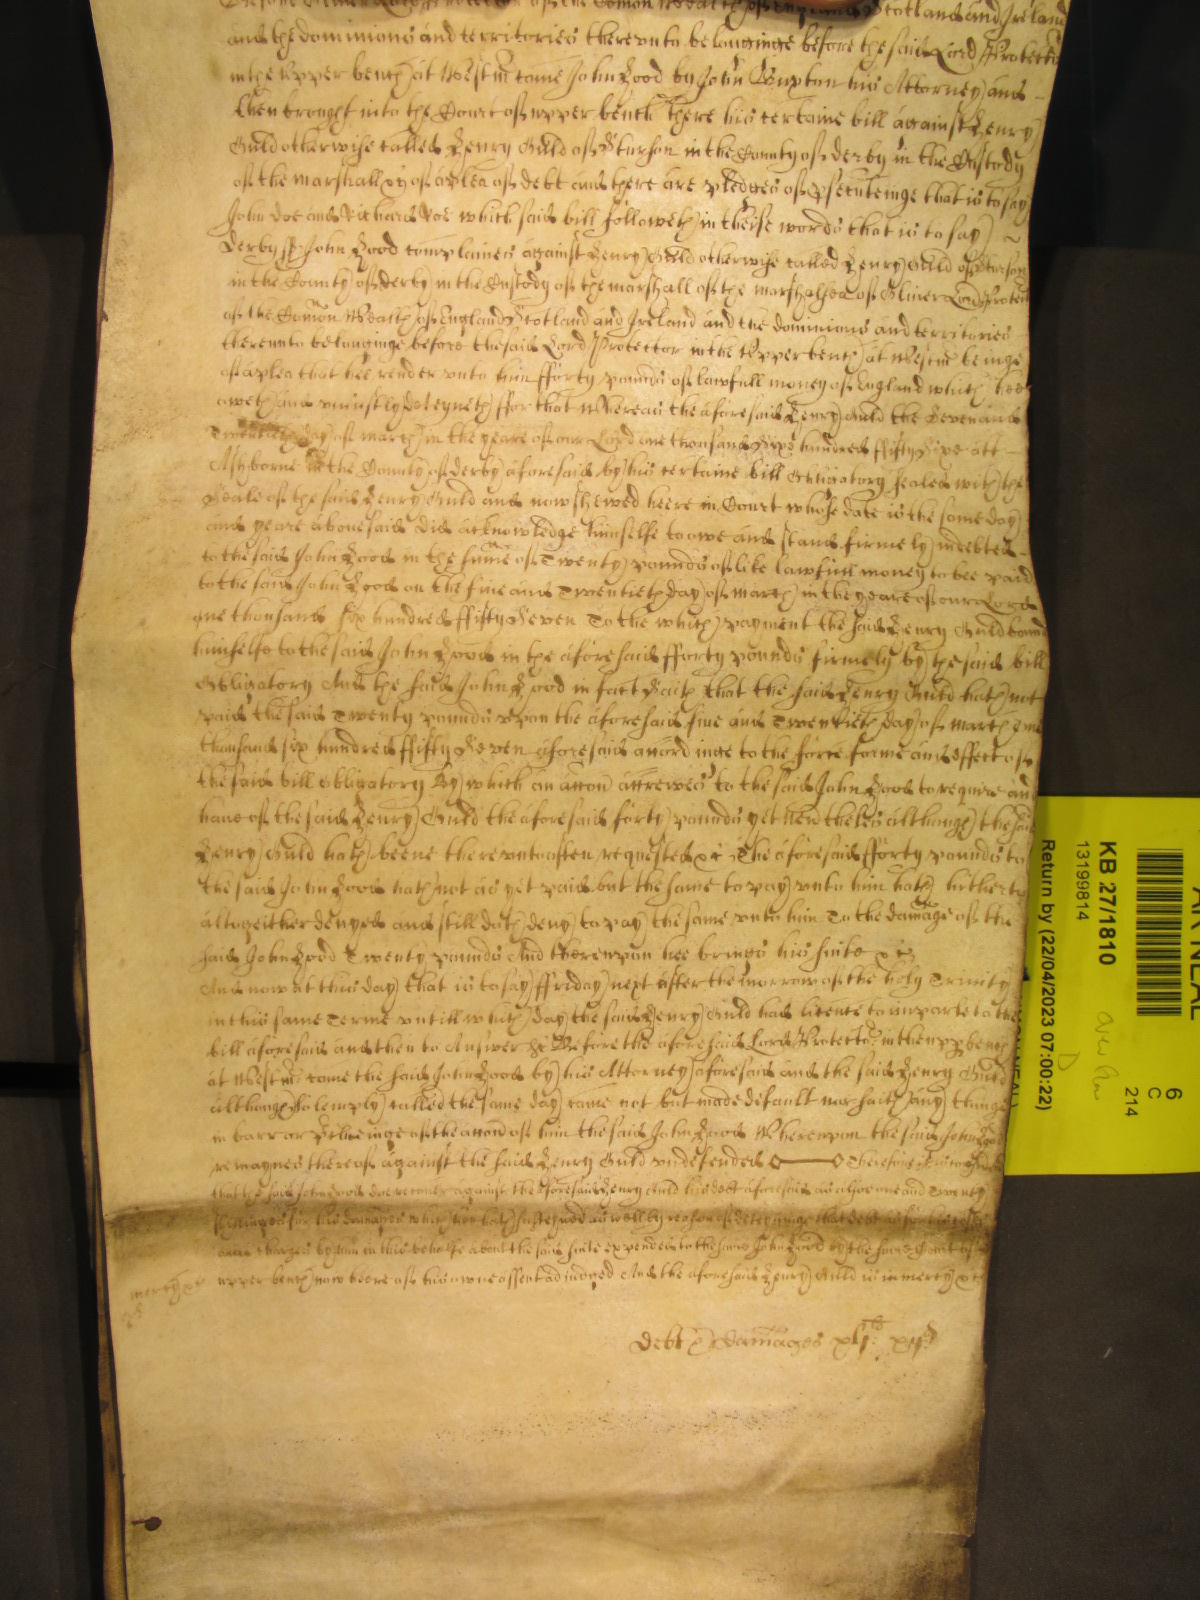 Oliver Lord Protector of the Comon Wealth of England Scotland and Ireland
and the dominions and territories therevnto belonginge before the said Lord Protector
in the Vpper bench at Westmr came John Hood by John Buxton his Attorney and
then brought into the Court of vpper bench there his certaine bill against Henry
Guld otherwise called Henry Guld of Sturson in the County of derby in the Custody
of the marshall &c of a plea of debt and there are pledges of psecuteinge that is to say
John doe and Richard Roe which said bill followeth in theise words that is to say
derby ss John Hood complaines against Henry Guld otherwise called Henry Guld of Sturson
in the County of derby in the Custody of the marshall of the marshalsea of Oliver Lord Protector
of the Comon Wealth of England Scotland and Ireland and the dominions and territories
therevnto belonginge before the said Lord Protector in the Vpper bench at Westmr beinge
of a plea that hee render vnto him fforty pounds of lawfull money of England which hee
oweth and vniustly deteyneth ffor that Whereas the aforesaid Henry Guld the Seven and
Twentieth day of march in the yeare of our Lord one thousand Sixe hundred ffifty Sixe att
Ashborne in the County of derby aforesaid by his certaine bill Obligatory sealed with the
Seale of the said Henry Guld and now shewed heere in Court whose date is the same day
and yeare abouesaid did acknowledge himselfe to owe and stand firmely indebted
to the said John Hood in the sume of Twenty pounds of like lawfull money to bee paid
to the said John Hood on the fiue and Twentieth day of march in the yeare of our Lord
one thousand six hundred ffifty Seven To the which payment the said Henry Guld bound
himselfe to the said John Hood in the aforesaid fforty pounds firmely by the said bill
Obligatory And the said John Hood in fact Saith that the said Henry Guld hath not
paid the said Twenty pounds vpon the aforesaid fiue and Twentieth day of march one
thousand six hundred ffifty Seven aforesaid accordinge to the force forme and effect of
the said bill obligatory By which an accon accrewes to the said John Hood to require and
haue of the said Henry Guld the aforesaid forty pounds yet neuertheles although the said
Henry Guld hath beene therevnto often requested &c The aforesaid fforty pounds to
the said John Hood hath not as yet paid but the same to pay vnto him hath hitherto
altogeither denyed and still doth deny to pay the same vnto him To the damage of the
said John Hood Twenty pounds And therevpon hee brings his suite &c
And now at this day that is to say ffriday next after the morrow of the holy Trinity
in this same Terme vntill which day the said Henry Guld had licence to imparle to the
bill aforesaid and then to Answer &c Before the aforesaid Lord Protector in the vpp bench
at Westmr came the said John Hood by his Attorney aforesaid and the said Henry Guld
although solemply called the same day came not but made default nor saith any thinge
in barr or of the accon of him the said John Hood Wherevpon the said John Hood
remaynes thereof against the said Henry Guld vndefended Therefore it is considered
that the said John Hood doe recouer against the aforesaid Henry Guld his debt aforesaid as alsoe one and Twenty
shillinges for his damages which hee hath susteyned as well by reason of deteyninge that debt as for his costs
and charges by him in this behalfe about the said suite expended to the said John Hood by the said Court of
vpper bench now heere of his owne assent adiudged And the aforesaid Henry Guld is in mercy &c
mercy &c
Debt & damages xljli: xijd
KB 27/1810
13199814
Return by (22/04/2023 07:00:22)
6
C
214